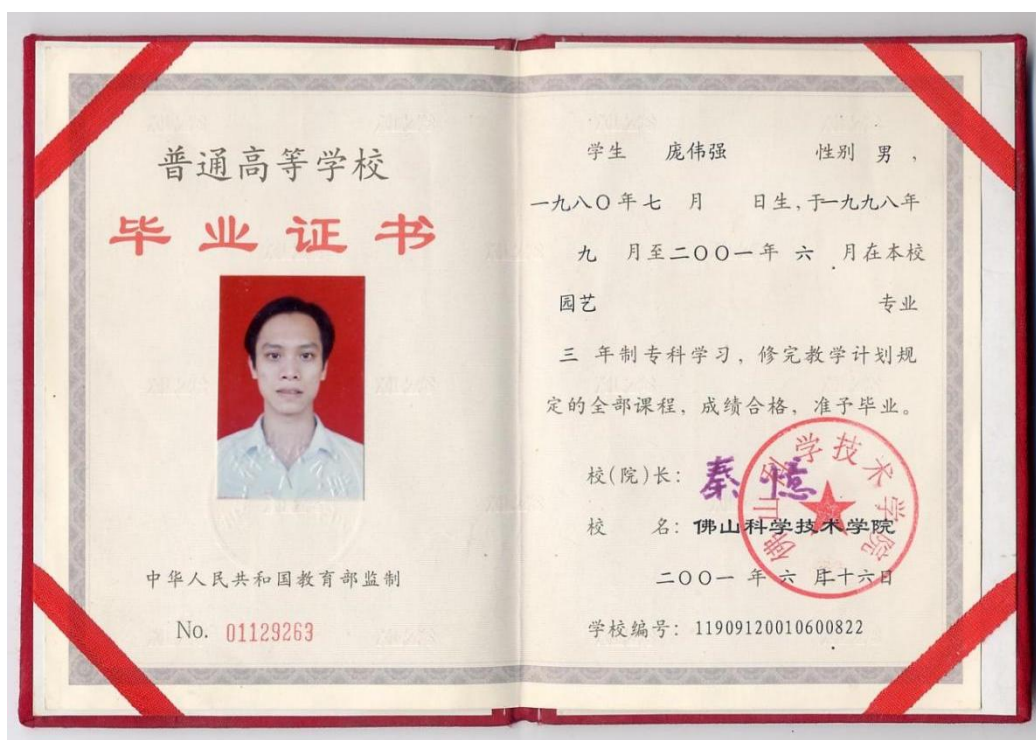 普通高等学校
毕业证书
中华人民共和国教育部监制
No. 01129263
学生 庞伟强 性别 男，
一九八〇年七 月 日生，于一九九八年
九 月至二〇〇一年 六 月在本校
园艺 专业
三 年制专科学习，修完教学计划规
定的全部课程，成绩合格，准予毕业。
校(院)长：秦 憶
校 名：佛山科学技术学院
二〇〇一 年 六 月十六日
学校编号：11909120010600822
佛山科学技术学院